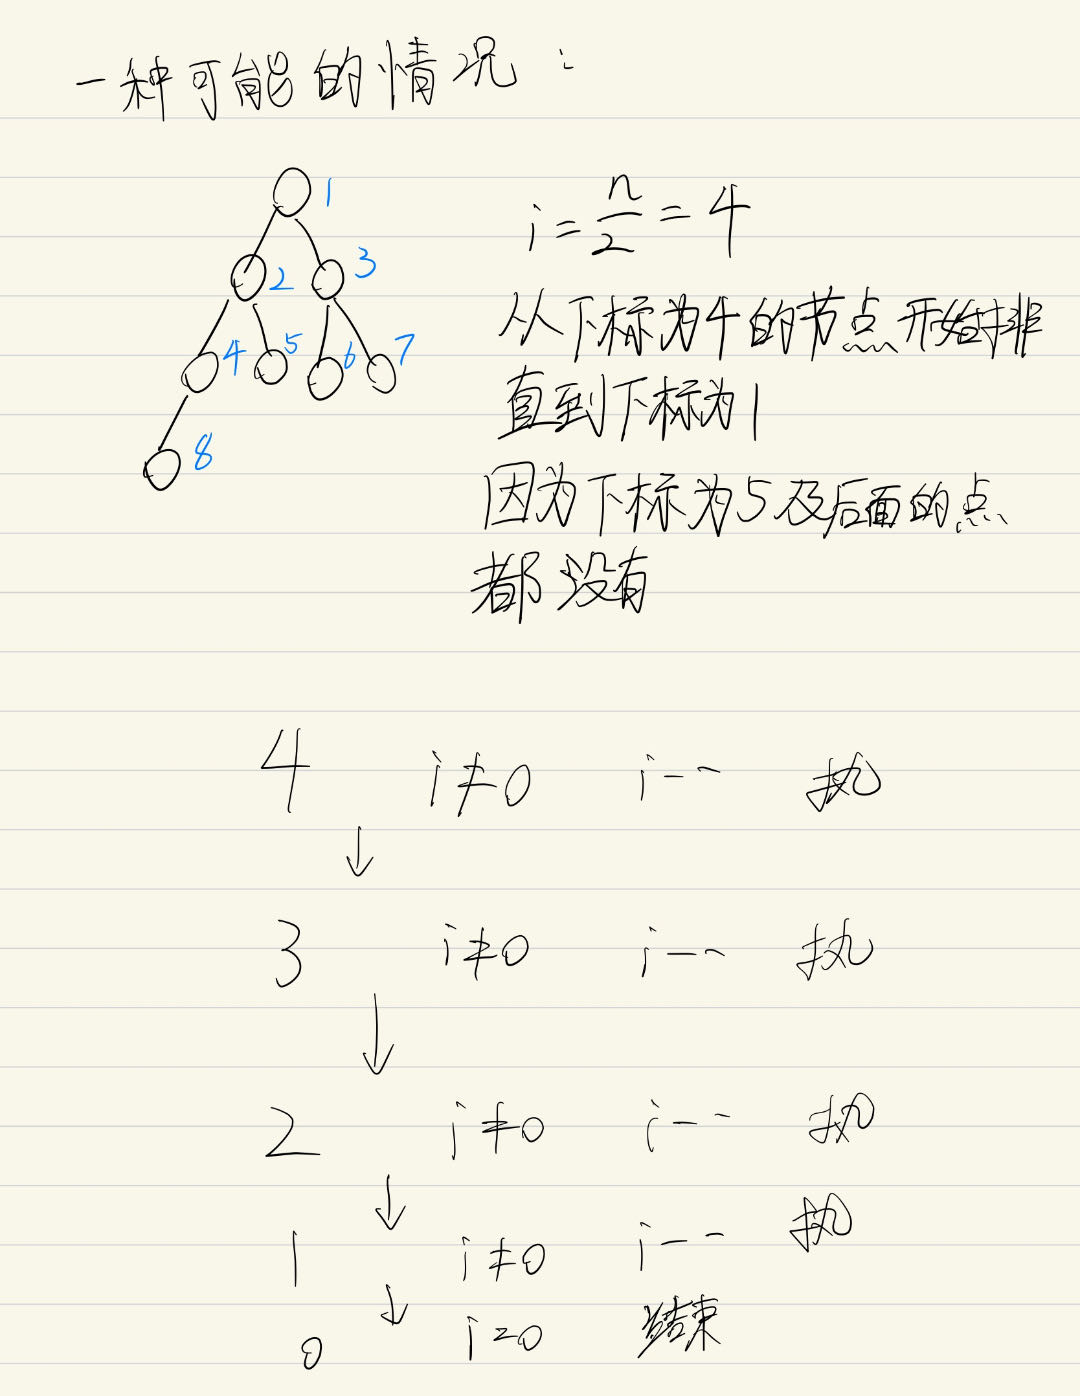 一种可能的情况：
1
2 3
4 5 6 7
8
i = n/2 = 4
从下标为4的节点开始排
直到下标为1
因为下标为5及后面的点
都没有
4 i≠0 i-- 执
↓
3 i≠0 i-- 执
↓
2 i≠0 i-- 执
↓
1 i≠0 i-- 执
↓
0 i=0 结束